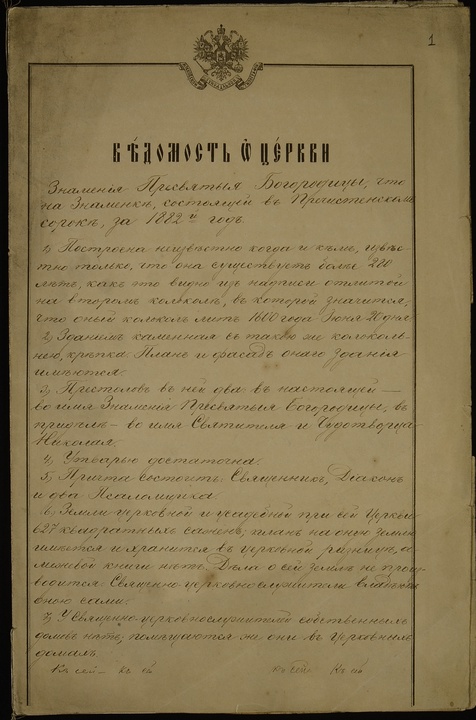 1
ВѢДОМОСТЬ Ѿ ЦЕРКВИ
Знаменія Пресвятыя Богородицы, что
на Знаменкѣ, состоящей въ Пречистенскомъ
сорокѣ, за 1882й годъ.
1) Построена неизвѣстно когда и кѣмъ, извѣс-
тно только, что она существуетъ болѣе 280
лѣтъ, какъ это видно изъ надписи отлитой
на второмъ колоколѣ, въ которой значится,
что оный колоколъ литъ 1600 года Іюня 20 дня.
2) Зданіемъ каменная съ такою же колоколь-
нею, крѣпка. Планъ и фасадъ онаго зданія
имѣются.
3) Престоловъ въ ней два: въ настоящей —
во имя Знаменія Пресвятыя Богородицы, въ
придѣлѣ – во имя Святителя и Чудотворца
Николая.
4) Утварью достаточна.
5) Причта состоитъ: Священникъ, Діаконъ
и два Псаломщика.
6) Земли церковной и усадебной при сей церкви
627 квадратныхъ саженъ; планъ на оную землю
имѣется и хранится въ церковной ризницѣ, а
межевой книги нѣтъ. Дѣла о сей землѣ не произ-
водится. Священно-церковнослужители владѣютъ
ею сами.
7) У Священно-церковнослужителей собственныхъ
домовъ нѣтъ; помѣщаются же они въ церковныхъ
домахъ.
Къ сей Къ сей Къ